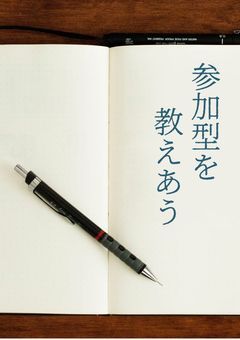 参加型を
教えあう